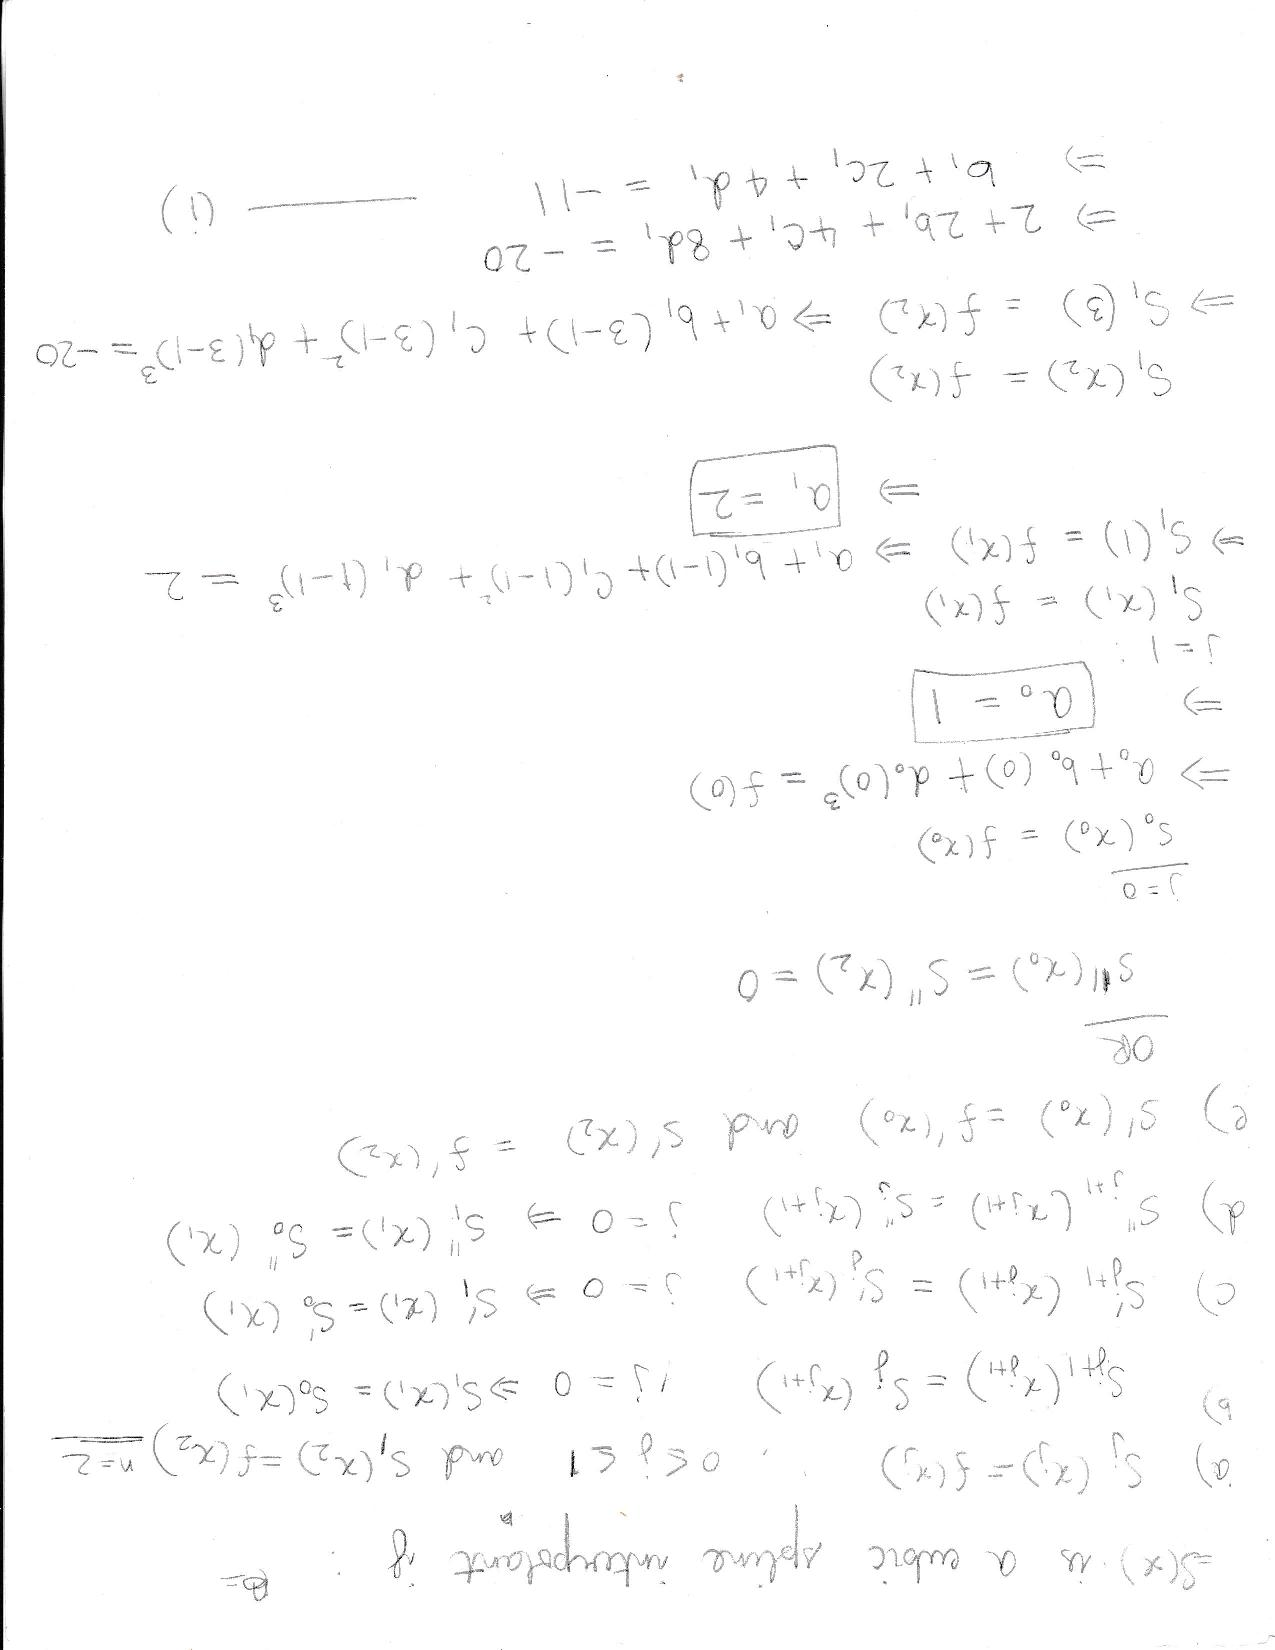 S(x) is a cubic spline interpolant if :
a) Sj (xj) = f(xj) , 0 ≤ j ≤ 1 and S1(x2) = f(x2) n=2
b) Sj+1(xj+1) = Sj (xj+1) j = 0 ⇒ S1(x1) = S0(x1)
c) S'j+1 (xj+1) = S'j (xj+1) j = 0 ⇒ S'1 (x1) = S'0 (x1)
d) S''j+1 (xj+1) = S''j (xj+1) j = 0 ⇒ S''1 (x1) = S''0 (x1)
e) S'(x0) = f'(x0) and S'(x2) = f'(x2)
OR
S''(x0) = S''(x2) = 0
j=0
S0(x0) = f(x0)
⇒ a0 + b0 (0) + d0(0)³ = f(0)
⇒ a0 = 1
j = 1 :
S1 (x1) = f(x1)
⇒ S1(1) = f(x1) ⇒ a1 + b1(1-1) + C1(1-1)² + d1 (1-1)³ = 2
⇒ a1 = 2
S1(x2) = f(x2)
⇒ S1 (3) = f(x2) ⇒ a1 + b1(3-1) + C1(3-1)² + d1(3-1)³ = -20
⇒ 2 + 2b1 + 4C1 + 8d1 = -20
⇒ b1 + 2C1 + 4d1 = -11 —— (i)